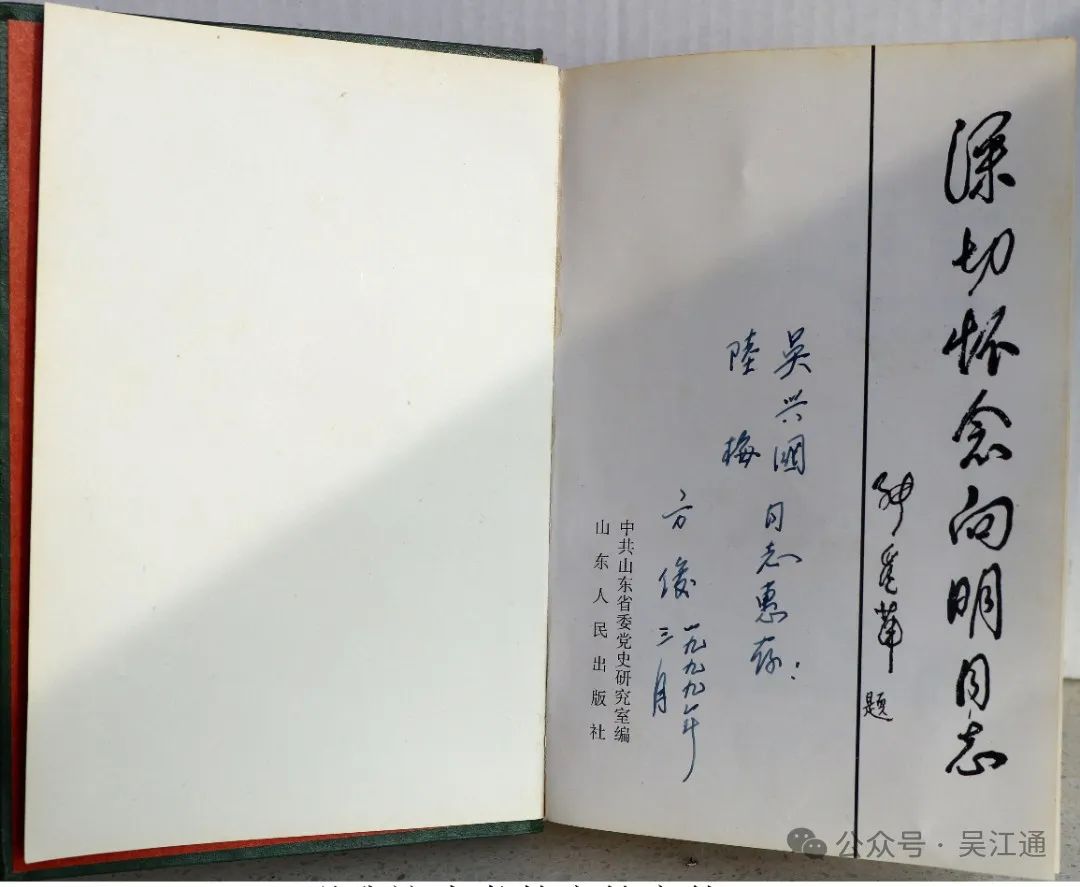 深切怀念向明同志
题
吴兴國
陸梅
同志惠存：
方俊
一九九九年
三月
中共山东省委党史研究室编
山东人民出版社
公众号·吴江通